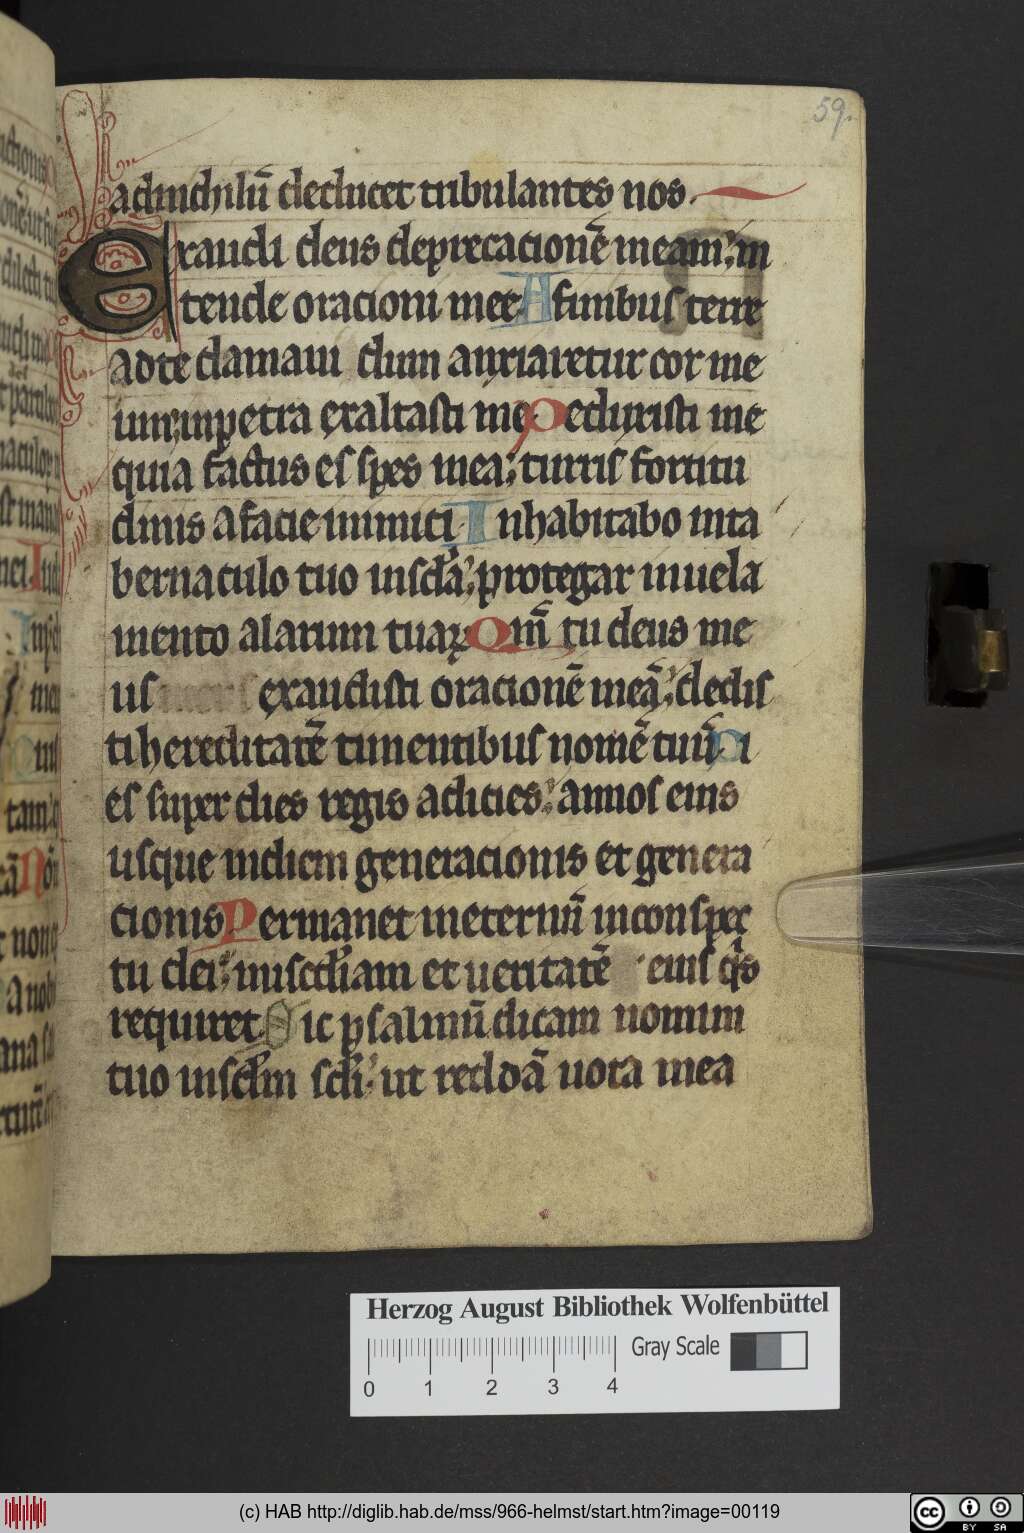 59.
adnichilū deducet tribulantes nos.
Exaudi deus deprecacionē meam; in
tende oracioni mee. A finibus terre
ad te clamaui dum anxiaretur cor me
um; in petra exaltasti me. Deduxisti me
quia factus es spes mea; turris fortitu
dinis a facie inimici. Inhabitabo in ta
bernaculo tuo in scła; protegar in uela
mento alarum tuaꝝ Qm̄ tu deus me
us exaudisti oracionē meā; dedis
ti hereditatē timentibus nomē tuū Di
es super dies regis adicies; annos eius
usque in diem generacionis et genera
cionis Permanet in eternū in conspec
tu dei; misc̄diam et ueritatē eius q̄s
requiret Sic psalmū dicam nomini
tuo in scłm scłi; ut reddā uota mea
Herzog August Bibliothek Wolfenbüttel
Gray Scale
0 1 2 3 4
(c) HAB http://diglib.hab.de/mss/966-helmst/start.htm?image=00119
cc BY SA